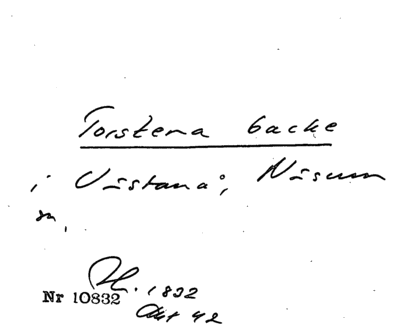 Torstena backe
i Västanå, Näsum
sn.
H. 1832
Nr 10832
Akt 42